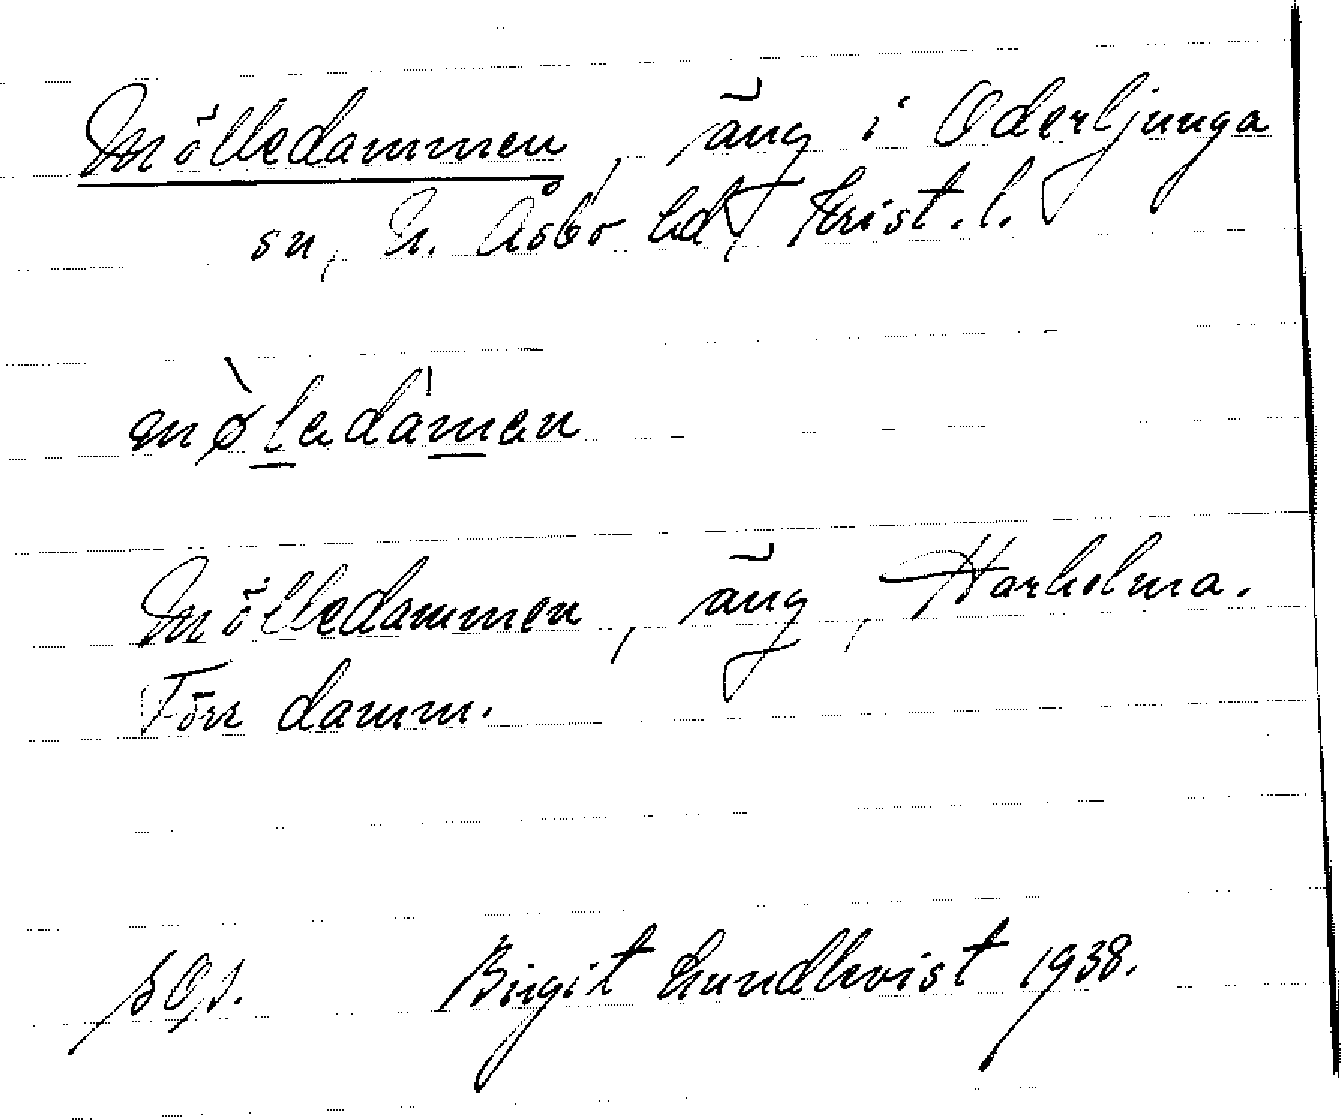 Mölledammen, äng i Oderljunga
sn, N. Åsbo hd, Krist. l.
mø̀lɘdámɘn
Mölledammen, äng, Harholma.
Förr damm.
Birgit Lundkvist 1938.